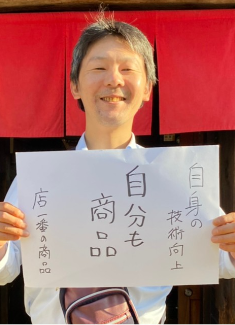 自身の
技術向上
自分も
商品
店一番の商品